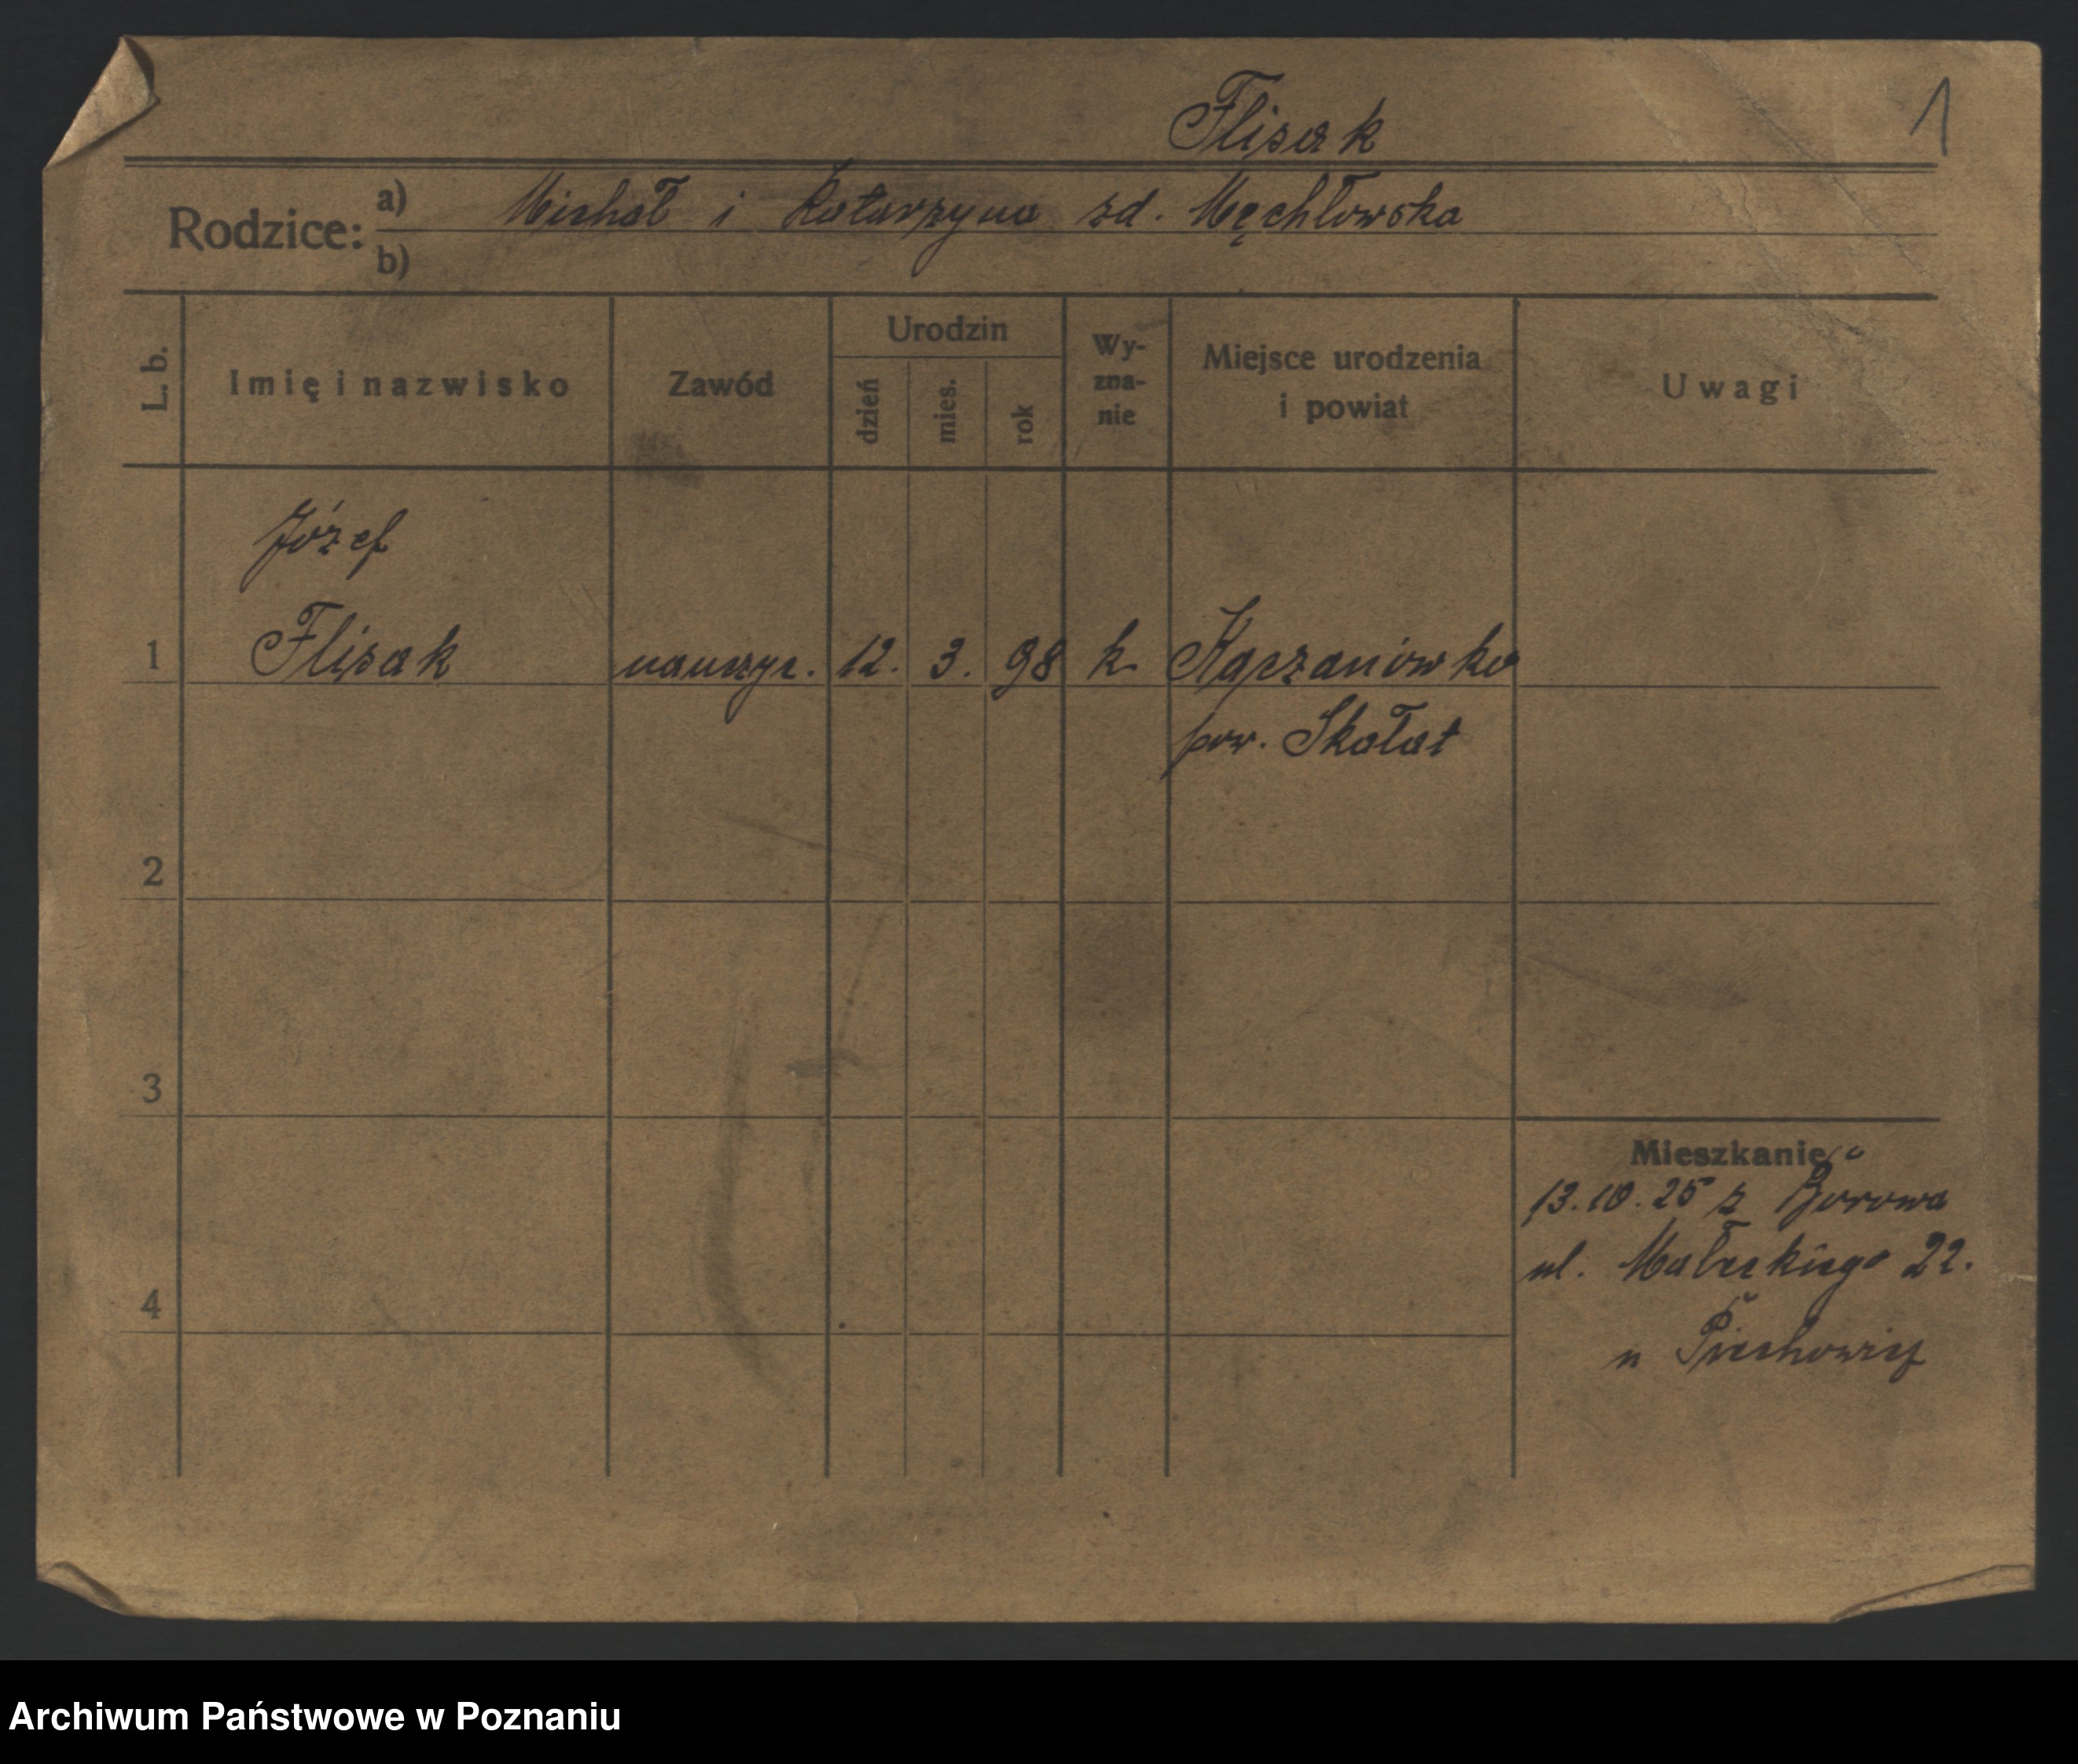 Flisak
1
Rodzice:
a) Michał i Katarzyna zd. Męchłowska
b)
L. b.
Imię i nazwisko
Zawód
Urodzin
dzień
mies.
rok
Wy-
zna-
nie
Miejsce urodzenia
i powiat
Uwagi
Józef
1 Flisak nauczyc. 12. 3. 98 k Kączanówka
pow. Skałat
2
3
4
Mieszkanie
13.10.25 z Borowa
ul. Małeckiego 22.
u Piechowicz
Archiwum Państwowe w Poznaniu